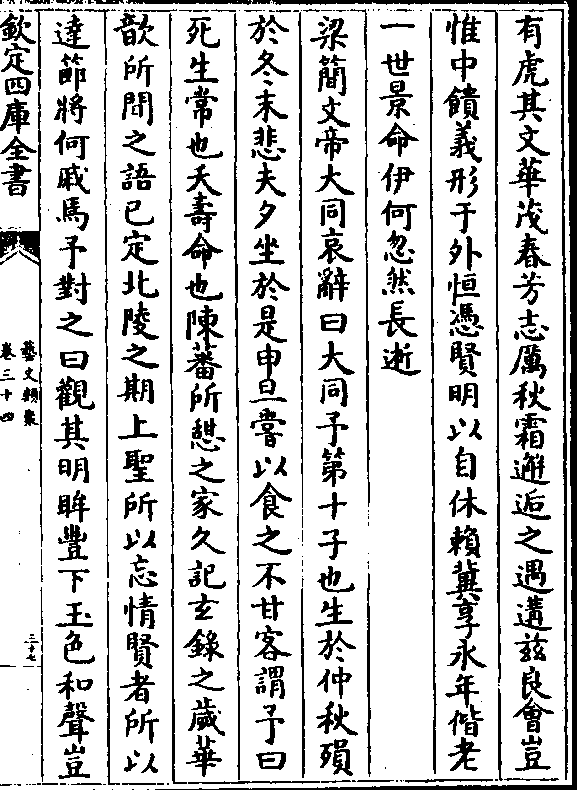 有虎其文華茂春芳志厲秋霜邂逅之遇遘兹良會豈
惟中饋義形于外恒憑賢明以自休賴冀享永年偕老
一世景命伊何忽然長逝
梁簡文帝大同哀辭曰大同予第十子也生於仲秋殞
於冬末悲夫夕坐於是申旦嘗以食之不甘客謂予曰
死生常也夭壽命也陳蕃所憇之家久記玄錄之歲華
歆所聞之語已定北陵之期上聖所以忘情賢者所以
達節將何戚焉予對之曰觀其明眸豐下玉色和聲豈
欽定四庫全書
藝文類聚
卷三十四
三十七